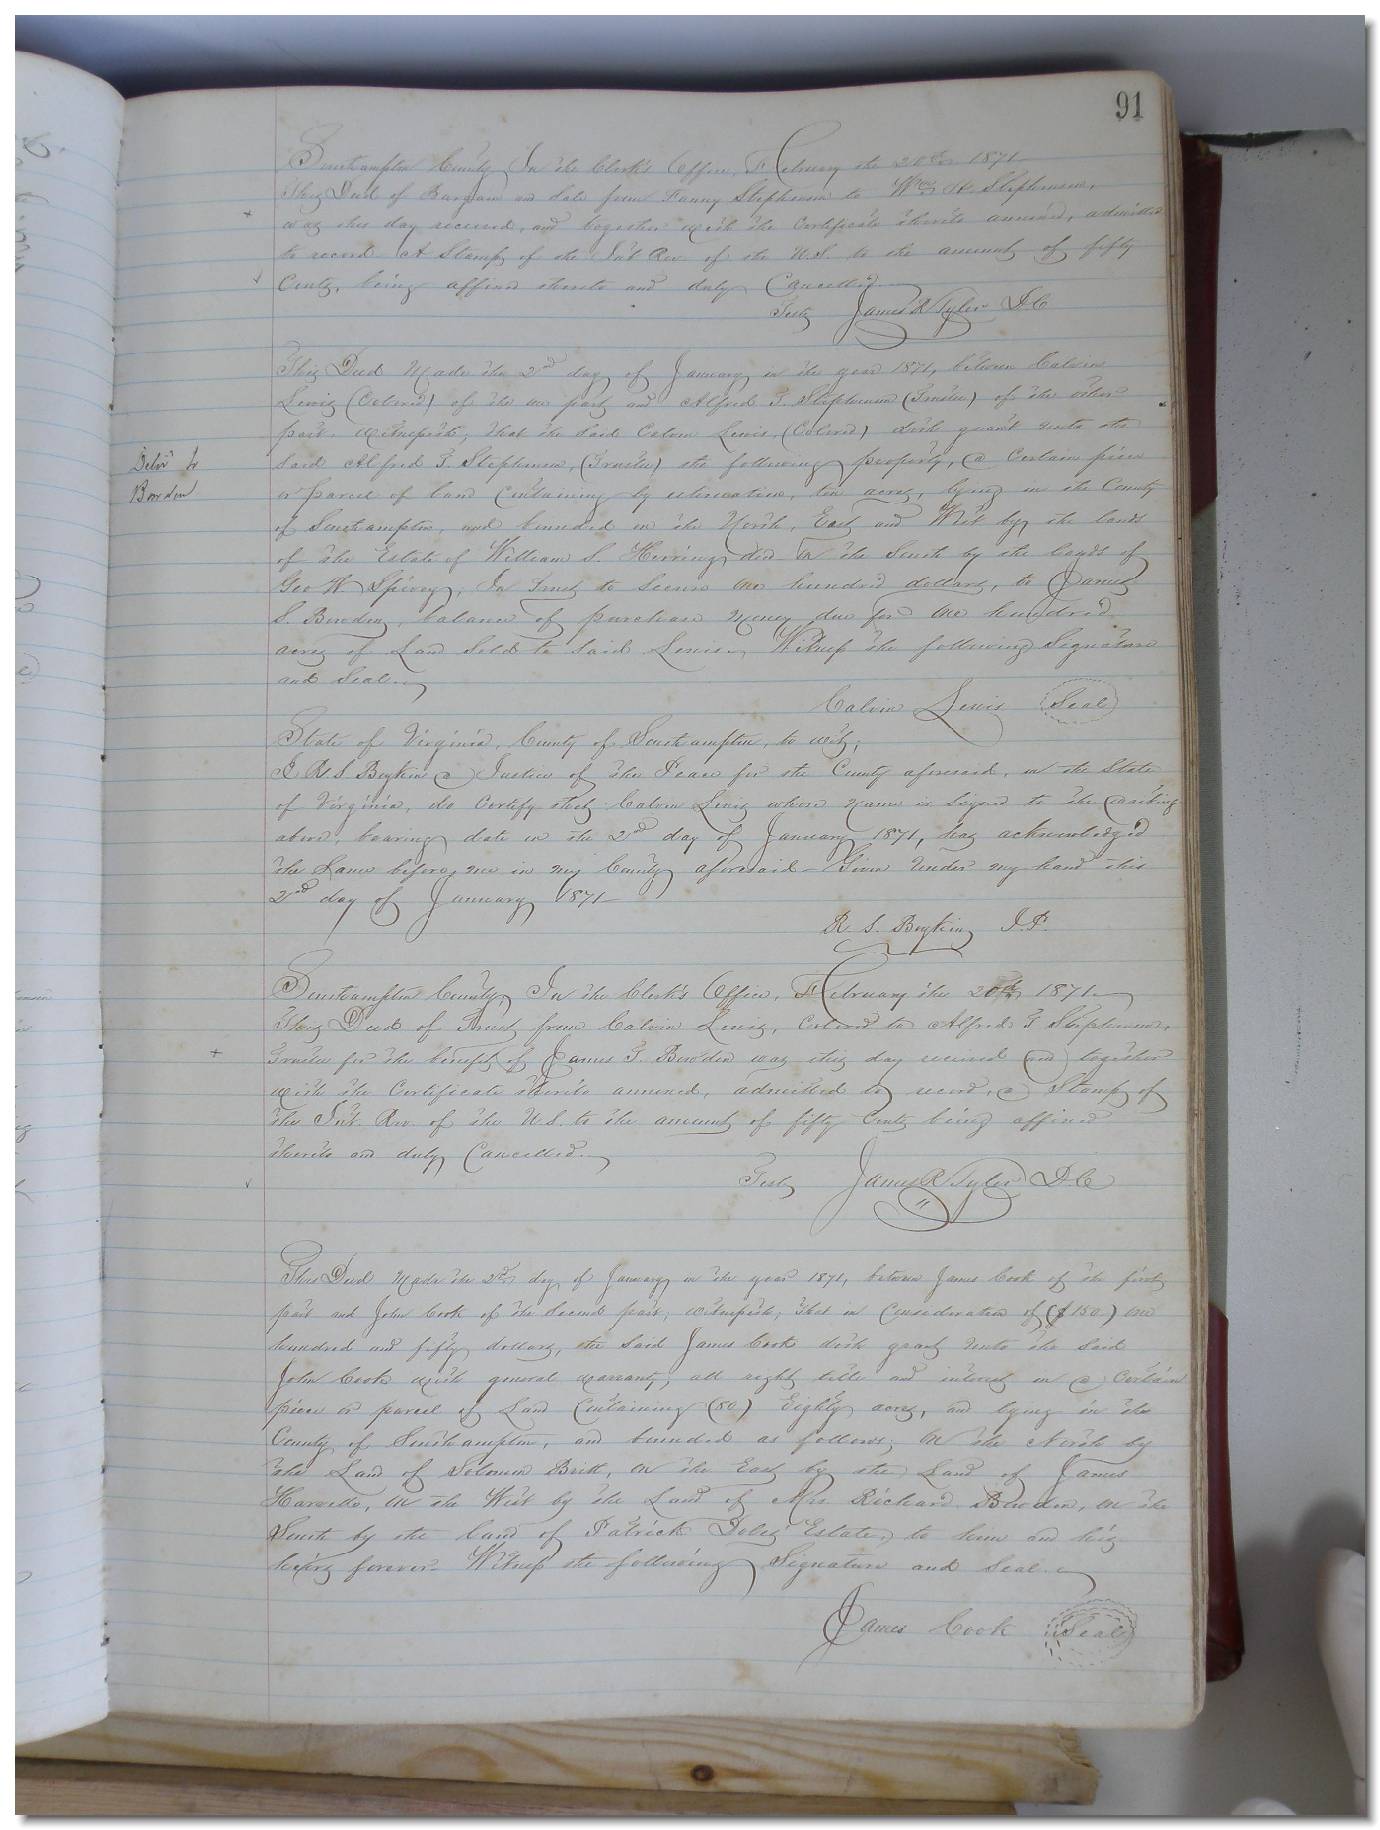 91
Southampton County, In the Clerk's Office, February the 20th 1871
This Deed of Bargain and Sale from Fanny Stephenson to Wm H. Stephenson,
was this day received, and together with the Certificate thereto annexed, admitted
to record A Stamp of the Int Rev of the U.S. to the amount of fifty
Cents, being affixed thereto and duly Cancelled
Teste James R Tyler D.C
This Deed Made the 2nd day of January in the year 1871, between Calvin
Lewis (Colored) of the one part and Alfred T. Stephenson (Trustee) of the other
part, witnesseth, that the said Calvin Lewis, (Colored) doth grant unto the
Said Alfred T. Stephenson, (Trustee) the following property, a Certain piece
or parcel of land Containing by estimation, ten acres, lying in the County
of Southampton, and bounded on the North, East and West by the lands
of the Estate of William S. Herring decd on the South by the lands of
Geo W Spivey, In Trust to Secure one hundred dollars, to James
S. Bowden, balance of purchase Money due for One hundred
acres of Land Sold to Said Lewis. Witness the following Signature
and Seal.
Delivd to
Bowden
Calvin Lewis Seal
State of Virginia, County of Southampton, to wit;
I R.S Boykin a Justice of the Peace for the County aforesaid, in the State
of Virginia, do Certify that Calvin Lewis whose Name is Signed to the writing
above, bearing date on the 2nd day of January 1871, has acknowledged
the Same before me in my County aforesaid - Given Under my hand this
2nd day of January 1871
R. S. Boykin J.P.
Southampton County, In the Clerk's Office, February the 20th 1871
This Deed of Trust from Calvin Lewis, Colored to Alfred T Stephenson,
Trustee for the benefit of James T. Bowden was this day received and together
with the Certificate thereto annexed, admitted to record, a Stamp of
the Int. Rev. of the U.S. to the amount of fifty Cents being affixed
thereto and duly Cancelled.
Teste James R Tyler D.C
This Deed Made the 2nd day of January in the year 1871, between James Cook of the first
part and John Cook of the Second part; witnesseth; that in Consideration of ($150) One
hundred and fifty dollars, the said James Cook doth grant unto the said
John Cook with general warranty, all right title and interest in a Certain
piece or parcel of Land Containing (80) Eighty acres, and lying in the
County of Southampton, and bounded as follows; On the North by
the Land of Solomon Britt, On the East by the Land of James
On the West by the Land of Mrs. Richard Bowden, On the
South by the land of Patrick Doles' Estate, to him and his
heirs forever. Witness the following Signature and Seal.
James Cook Seal